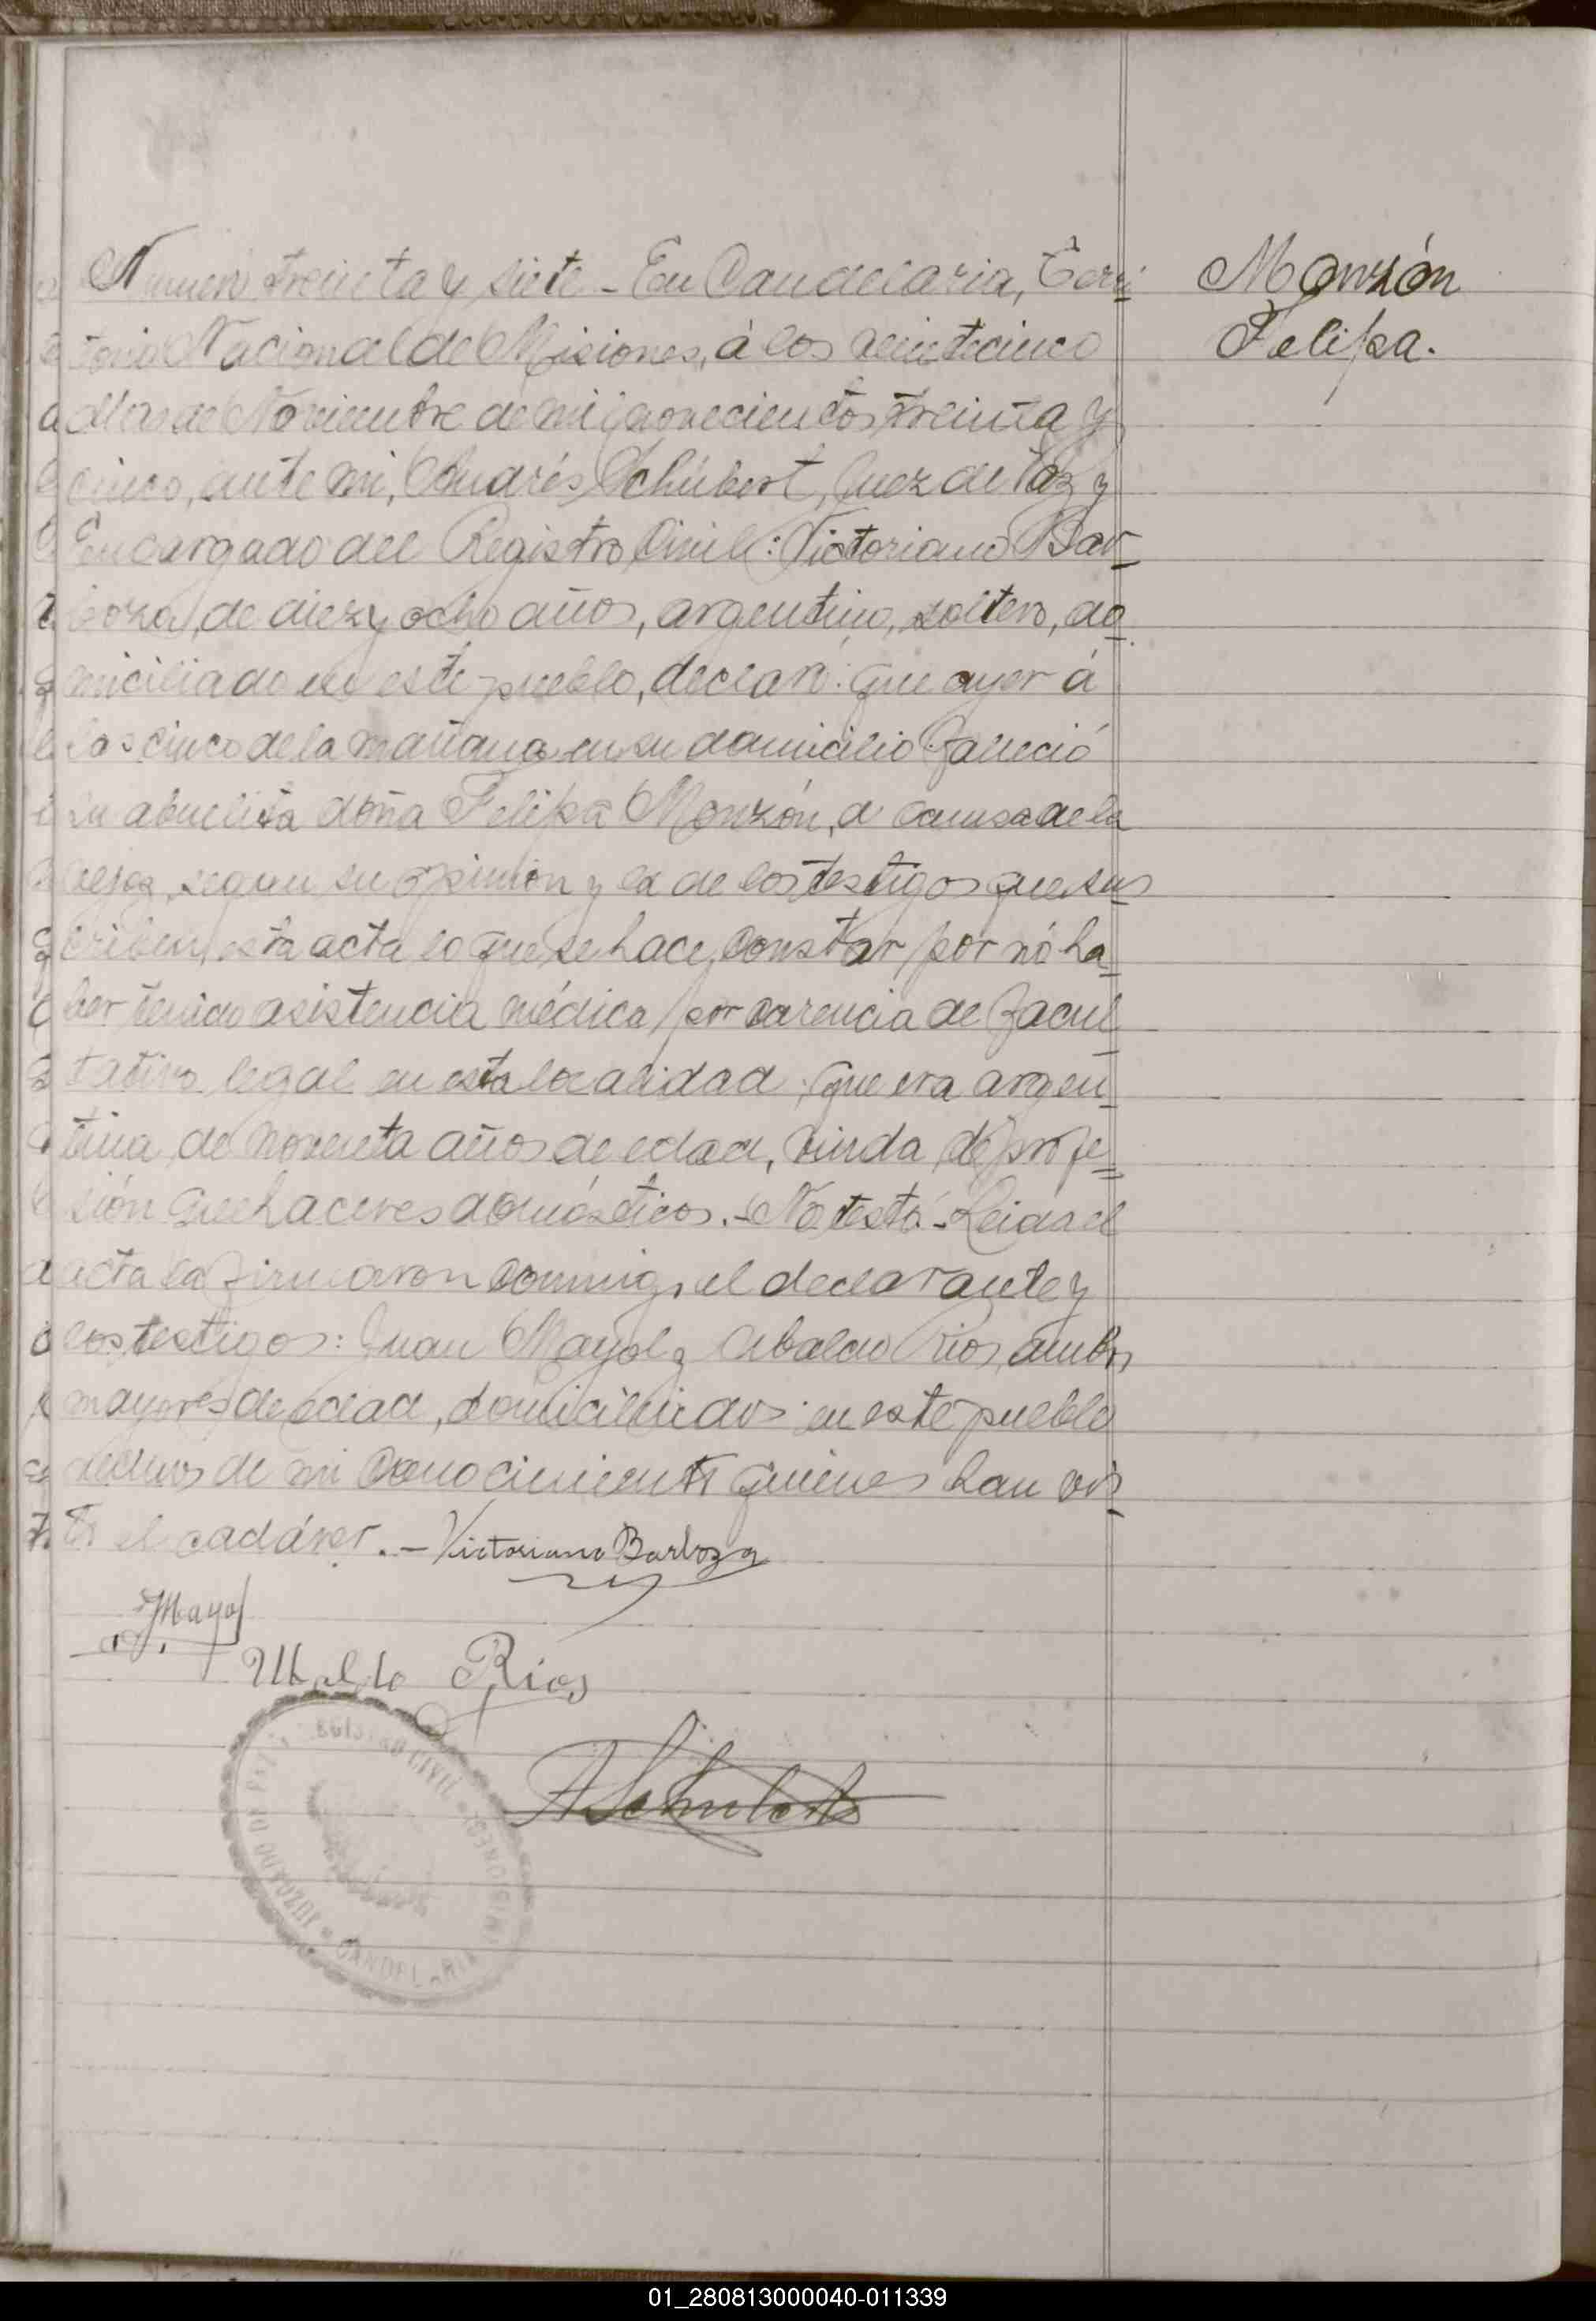 Numero treinta y siete - En Candelaria, Terri
torio Nacional de Misiones, á los veinticinco
dias de Noviembre de mil novecientos treinta y
cinco, ante mi, Andrés Schubert, Juez de Paz y
Encargado del Registro Civil: Victoriano Bar-
boza, de diez y ocho años, argentino, soltero, do
miciliado en este pueblo, declaró: que ayer á
las cinco de la mañana en su domicilio falleció
su abuelita doña Felipa Monzón, a causa de la
vejez, segun su opinión y la de los testigos que sus
criben esta acta lo que se hace constar por nó ha
ber tenido asistencia médica por carencia de facul
tativo legal en esta localidad; que era argen
tina, de noventa años de edad, viuda, de profe=
sión quehaceres domésticos. - No testó - Leida el
acta la firmaron conmigo, el declarante y
los testigos: Juan Mayol y Ubaldo Rios, ambos
mayores de edad, domiciliados en este pueblo
de mi conocimiento quienes han vis
to el cadáver. - Victoriano Barboza
JMayol
Ubaldo Rios
ASchubert
Monzón
Felipa.
REGISTRO CIVIL
MISIONES
CANDELARIA
JUZGADO DE PAZ
01_280813000040-011339